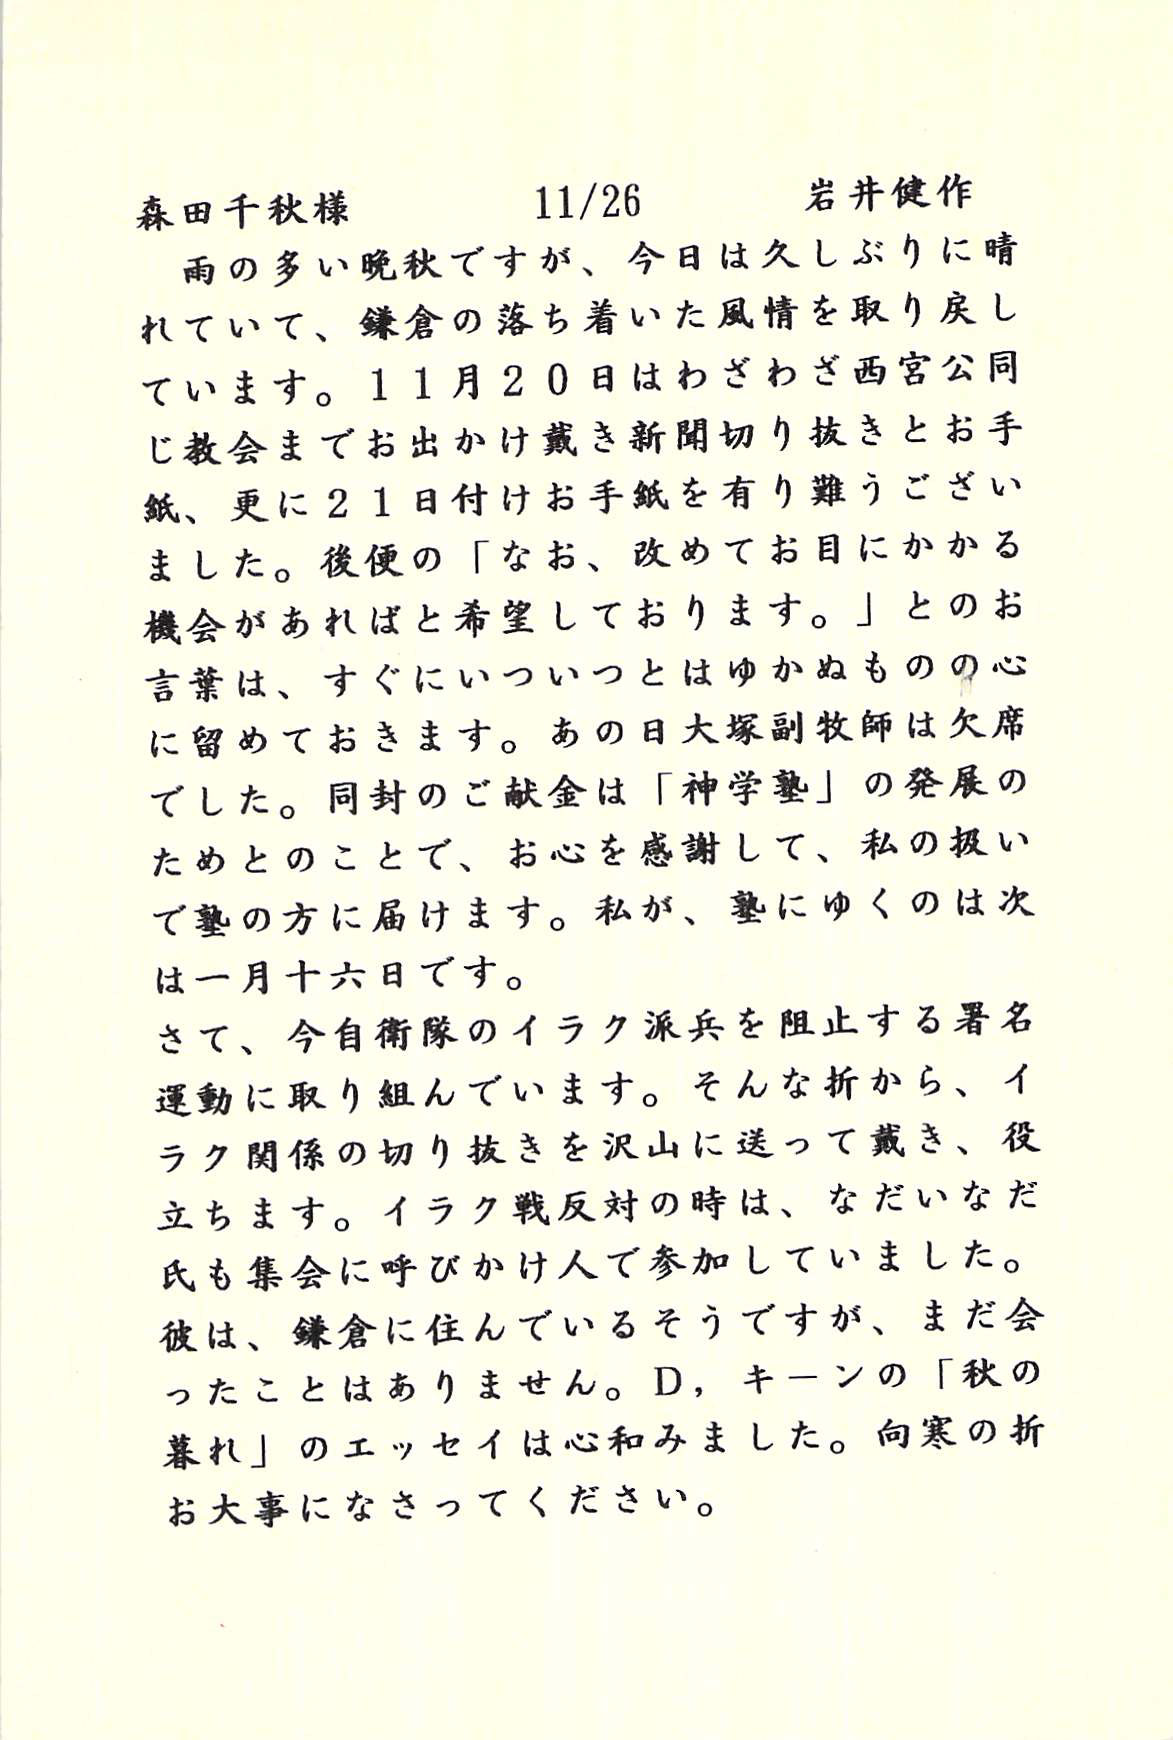 森田千秋様　11/26　岩井健作
　雨の多い晩秋ですが、今日は久しぶりに晴
れていて、鎌倉の落ち着いた風情を取り戻し
ています。１１月２０日はわざわざ西宮公同
じ教会までお出かけ戴き新聞切り抜きとお手
紙、更に２１日付けお手紙を有り難うござい
ました。後便の「なお、改めてお目にかかる
機会があればと希望しております。」とのお
言葉は、すぐにいついつとはゆかぬものの心
に留めておきます。あの日大塚副牧師は欠席
でした。同封のご献金は「神学塾」の発展の
ためとのことで、お心を感謝して、私の扱い
で塾の方に届けます。私が、塾にゆくのは次
は一月十六日です。
さて、今自衛隊のイラク派兵を阻止する署名
運動に取り組んでいます。そんな折から、イ
ラク関係の切り抜きを沢山に送って戴き、役
立ちます。イラク戦反対の時は、なだいなだ
氏も集会に呼びかけ人で参加していました。
彼は、鎌倉に住んでいるそうですが、まだ会
ったことはありません。Ｄ，キーンの「秋の
暮れ」のエッセイは心和みました。向寒の折
お大事になさってください。